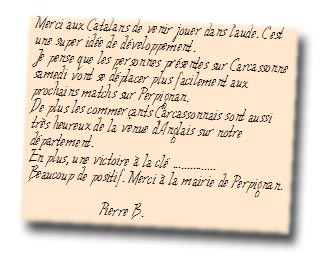 Merci aux Catalans de venir jouer dans l'aude. C'est
une super idée de développement.
Je pense que les personnes présentes sur Carcassonne
samedi vont se déplacer plus facilement aux
prochains matchs sur Perpignan.
De plus les commerçants Carcassonnais sont aussi
très heureux de la venue d'Anglais sur notre
département.
En plus, une victoire à la clé ...............
Beaucoup de positif. Merci à la mairie de Perpignan.
Pierre B.